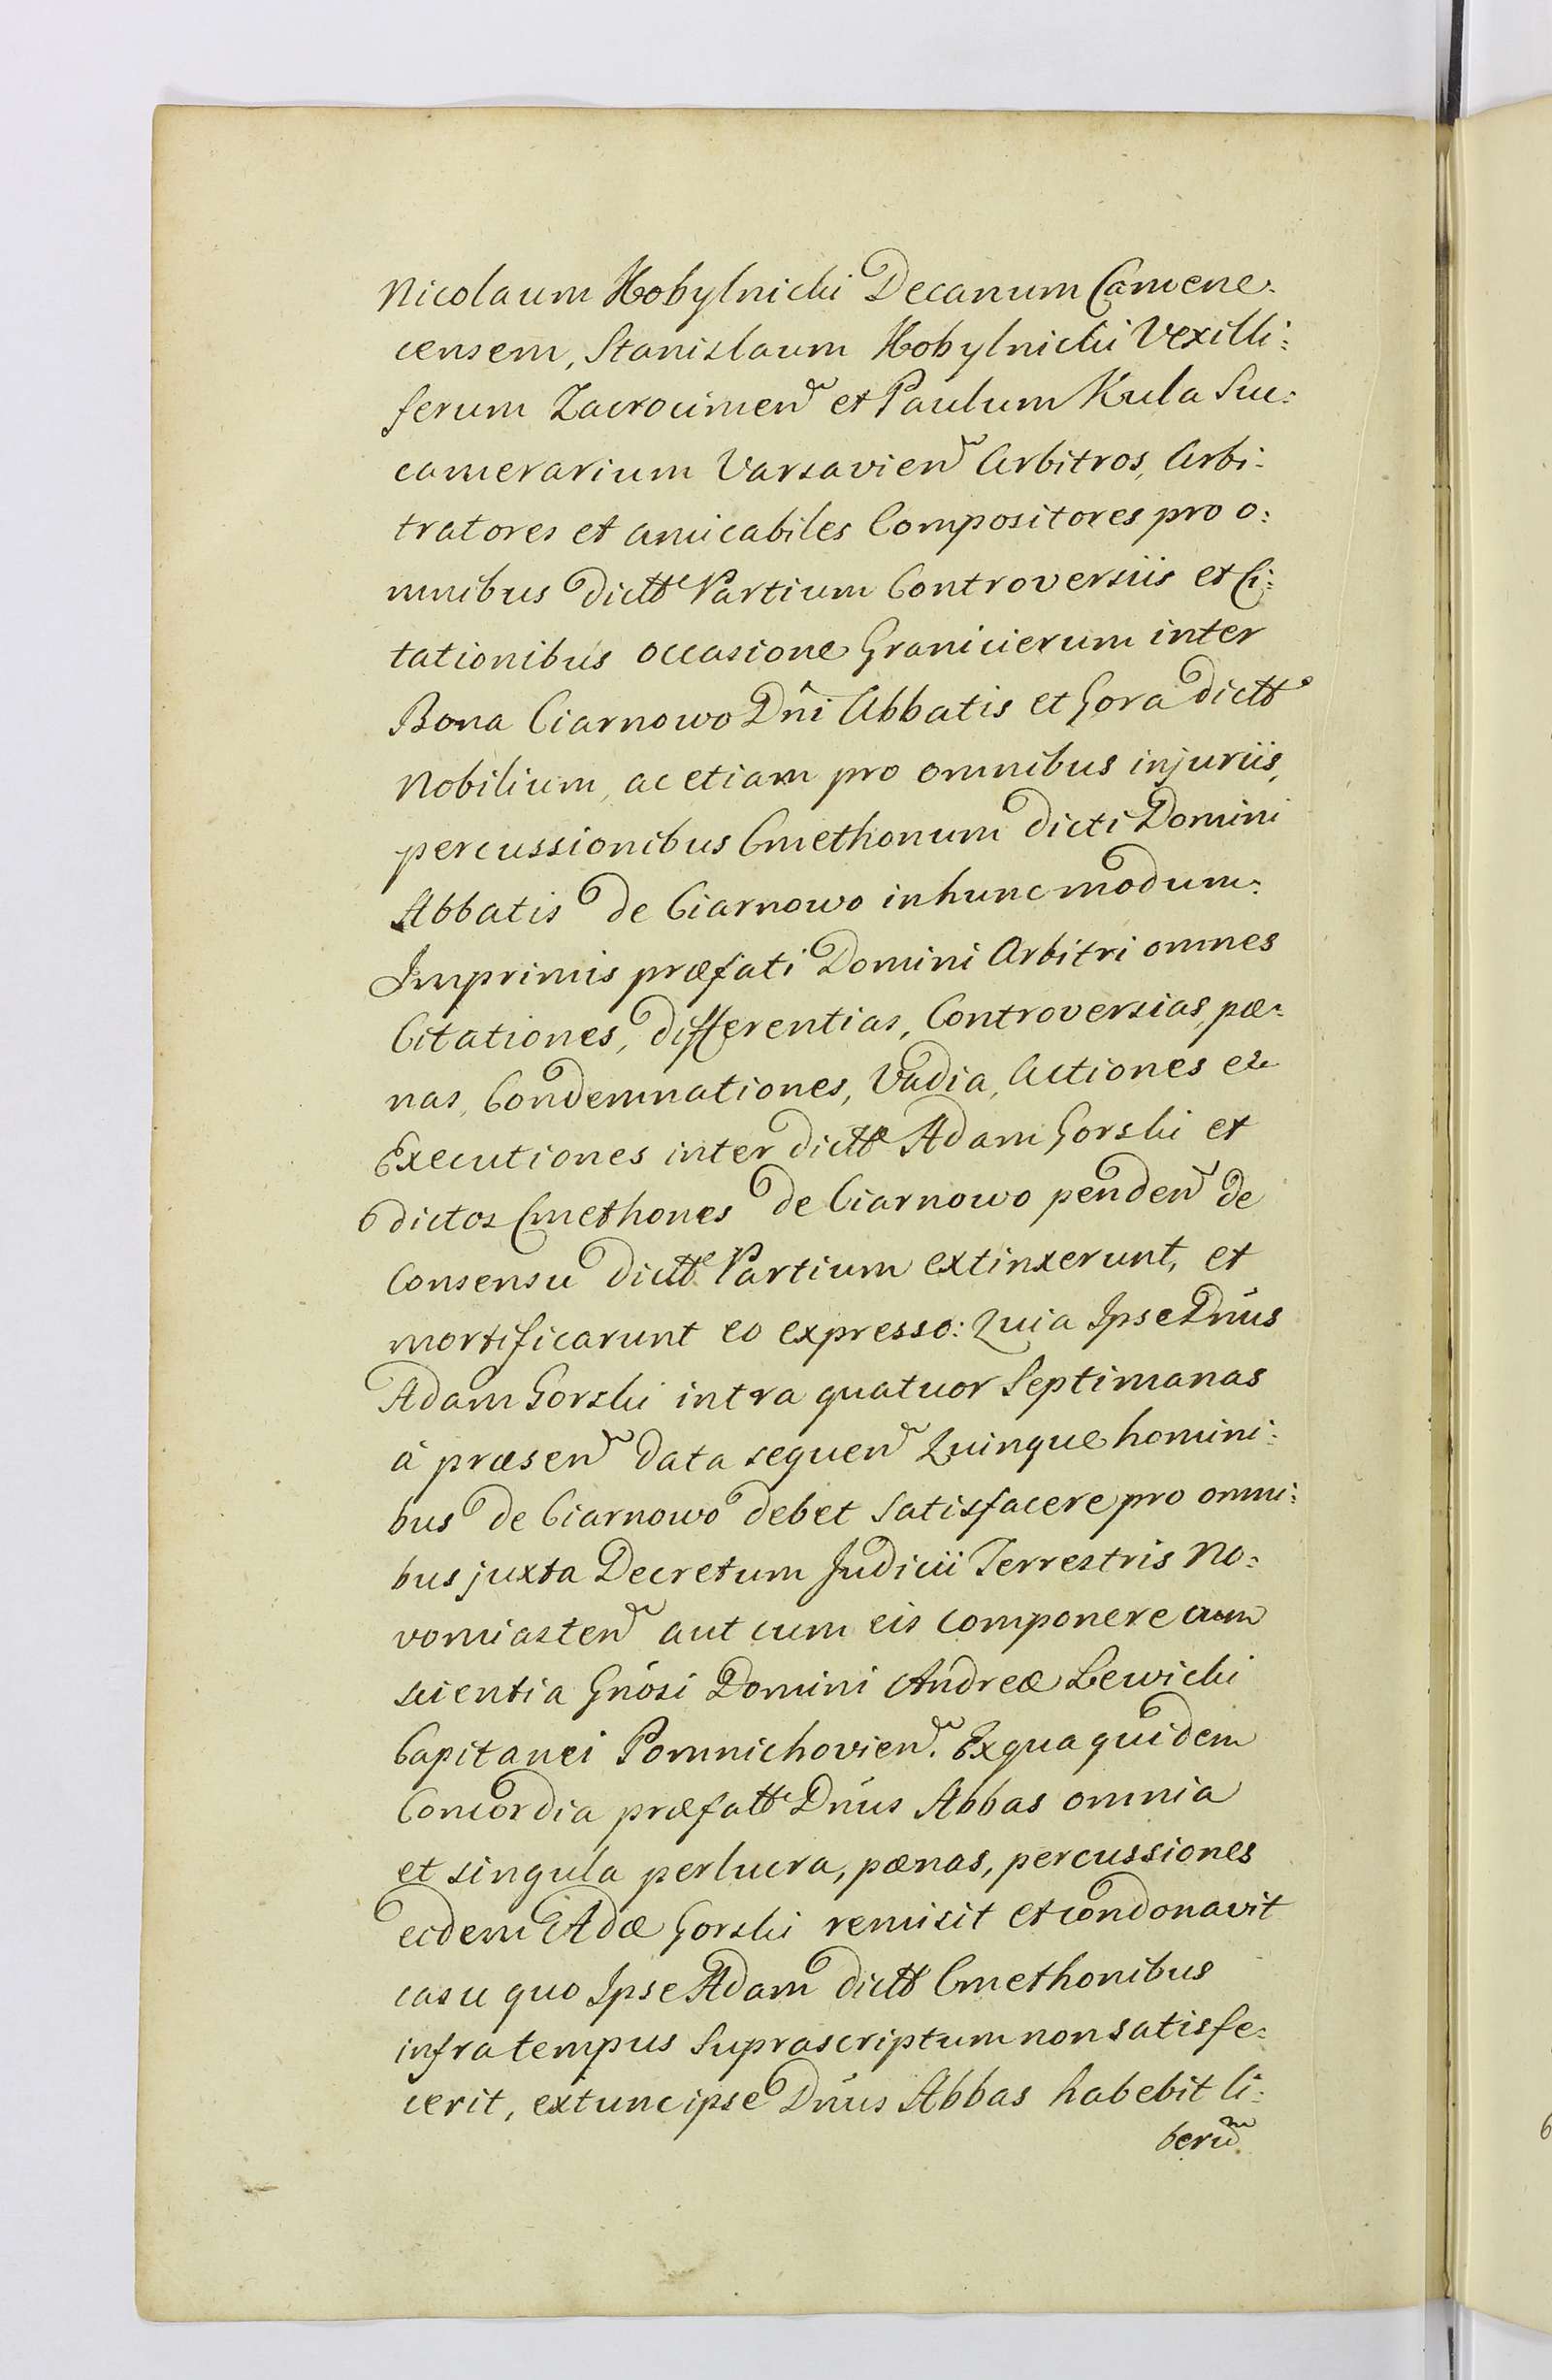 Nicolaum Kobylnicki Decanum Camene:
censem, Stanislaum Kobylnicki Vexilli:
ferum Zacrocimen̄ et Paulum Kula Suc:
camerarium Varsavien̄ Arbitros, Arbi:
tratores et amicabiles Compositores pro o:
mnibus dictt Partium Controversiis et Ci:
tationibus occasione Granicierum inter
Bona Ciarnowo Dn̄i Abbatis et Gora dictt
Nobilium, ac etiam pro omnibus injuriis,
percussionibus Cmethonum dicti Domini
Abbatis de Ciarnowo in hunc modum:
Imprimis præfati Domini Arbitri omnes
Citationes, differentias, Controversias, pæ:
nas, Condemnationes, Vadia, Actiones et
Executiones inter dictt Adam Gorski et
dictos Cmethones de Ciarnowo penden̄ de
Consensu dictt Partium extinxerunt, et
mortificarunt eo expresso: Quia Ipse Dn̄us
Adam Gorski intra quatuor Septimanas
à præsen̄ data sequen̄ Quinque homini:
bus de Ciarnowo debet Satisfacere pro omni:
bus juxta Decretum Judicii Terrestris No:
vomiasten̄ aut cum eis componere cum
scientia Gn̄osi Domini Andreæ Lewicki
Capitanei Pomnichovien̄. Ex qua quidem
Concordia præfatt Dn̄us Abbas omnia
et singula perlucra, pænas, percussiones
eidem Adæ Gorski remisit et condonavit
casu quo Ipse Adam dictt Cmethonibus
infra tempus Suprascriptum non satisfe:
cerit, extunc ipse Dn̄us Abbas habebit li:
berū